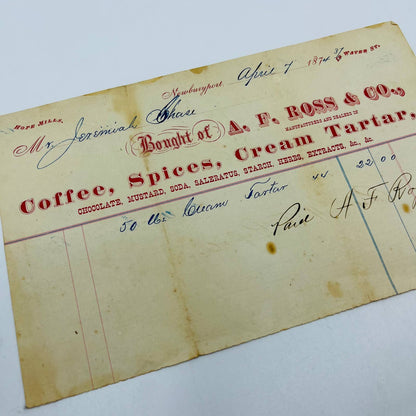 HOPE MILLS, 37 WATER ST.
Newburyport, April 7 1874
Mr. Jeremiah Chase
Bought of A. F. ROSS & CO.,
MANUFACTURERS AND DEALERS IN
Coffee, Spices, Cream Tartar,
CHOCOLATE, MUSTARD, SODA, SALERATUS, STARCH, HERBS, EXTRACTS, &c., &c.
50 lbs Cream Tartar 44 22 00
Paid A F R